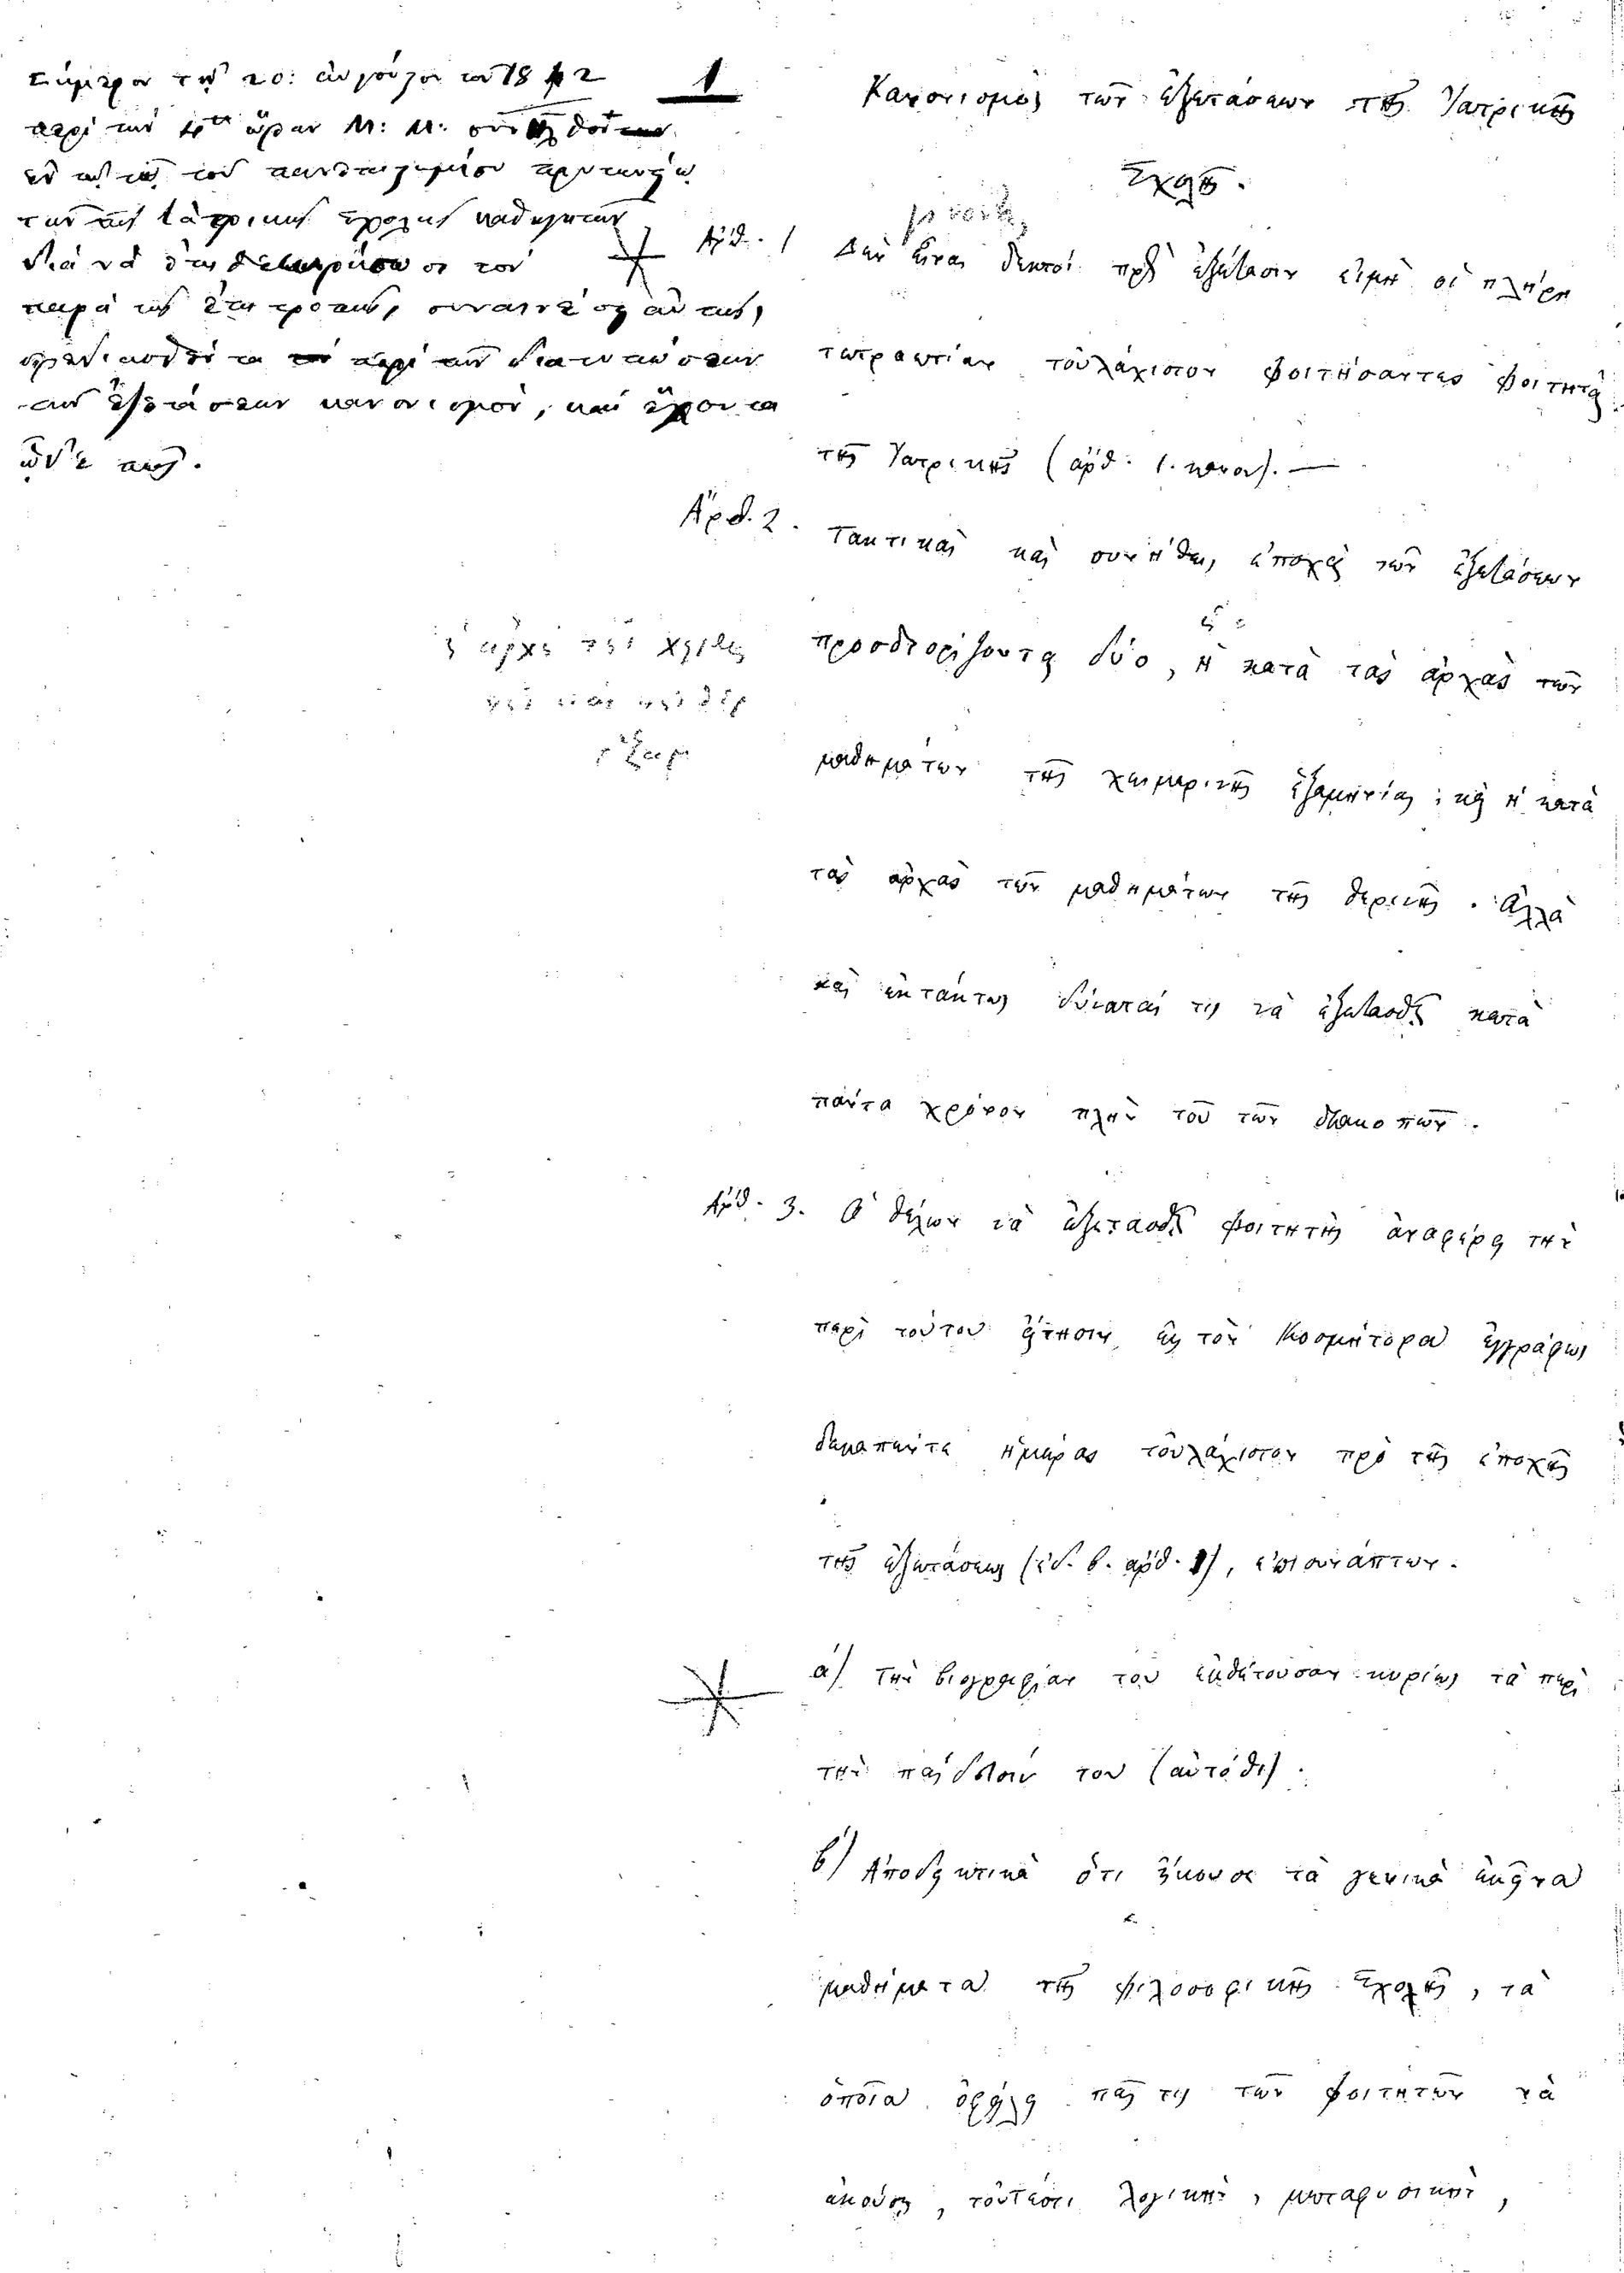 Σήμερον τῇ 20: αὐγούστου τοῦ 1842
περὶ τὴν ὥραν Μ: Μ:
ἐν τῷ τοῦ πανεπιστημίου
τῶν τῆς ἰατρικῆς σχολῆς καθηγητῶν
διὰ νὰ τὸν
παρὰ τῆς ἐπιτροπῆς,
σχεδιασθέντα περὶ τῶν
τῶν ἐξετάσεων κανονισμόν, καὶ ἔχοντα
ὧδέ πως.
1
Κανονισμὸς τῶν ἐξετάσεων τῆς Ἰατρικῆς
Σχολῆς.
Ἀρθ. 1 Δὲν εἶναι δεκτοὶ πρὸς ἐξέτασιν εἰμὴ οἱ πλήρη
τετραετίαν τοὐλάχιστον φοιτήσαντες φοιτηταὶ
τῆς Ἰατρικῆς (ἀρθ. 1. κανον). —
Ἀρθ. 2. Τακτικαὶ καὶ συνήθεις ἐποχαὶ τῶν ἐξετάσεων
προσδιορίζονται δύο, ἡ κατὰ τὰς ἀρχὰς τῶν
μαθημάτων τῆς χειμερινῆς ἑξαμηνίας, καὶ ἡ κατὰ
τὰς ἀρχὰς τῶν μαθημάτων τῆς θερινῆς. Ἀλλὰ
καὶ ἐκτάκτως δύναταί τις νὰ ἐξετασθῇ κατὰ
πάντα χρόνον πλὴν τοῦ τῶν διακοπῶν.
Ἀρθ. 3. Ὁ θέλων νὰ ἐξετασθῇ φοιτητὴς ἀναφέρει τὴν
περὶ τούτου αἴτησιν εἰς τὸν Κοσμήτορα ἐγγράφως
δεκαπέντε ἡμέρας τοὐλάχιστον πρὸ τῆς ἐποχῆς
τῆς ἐξετάσεως (ἐδ. β. ἀρθ. 1), ἐπισυνάπτων.
α) Τὴν βιογραφίαν του ἐκθέτουσαν κυρίως τὰ περὶ
τὴν παίδευσίν του (αὐτόθι).
β) Ἀποδεικτικὰ ὅτι ἤκουσε τὰ γενικὰ ἐκεῖνα
μαθήματα τῆς φιλοσοφικῆς Σχολῆς, τὰ
ὁποῖα ὀφείλει πᾶς τις τῶν φοιτητῶν νὰ
ἀκούσῃ, τοὐτέστι λογικὴν, μεταφυσικὴν,